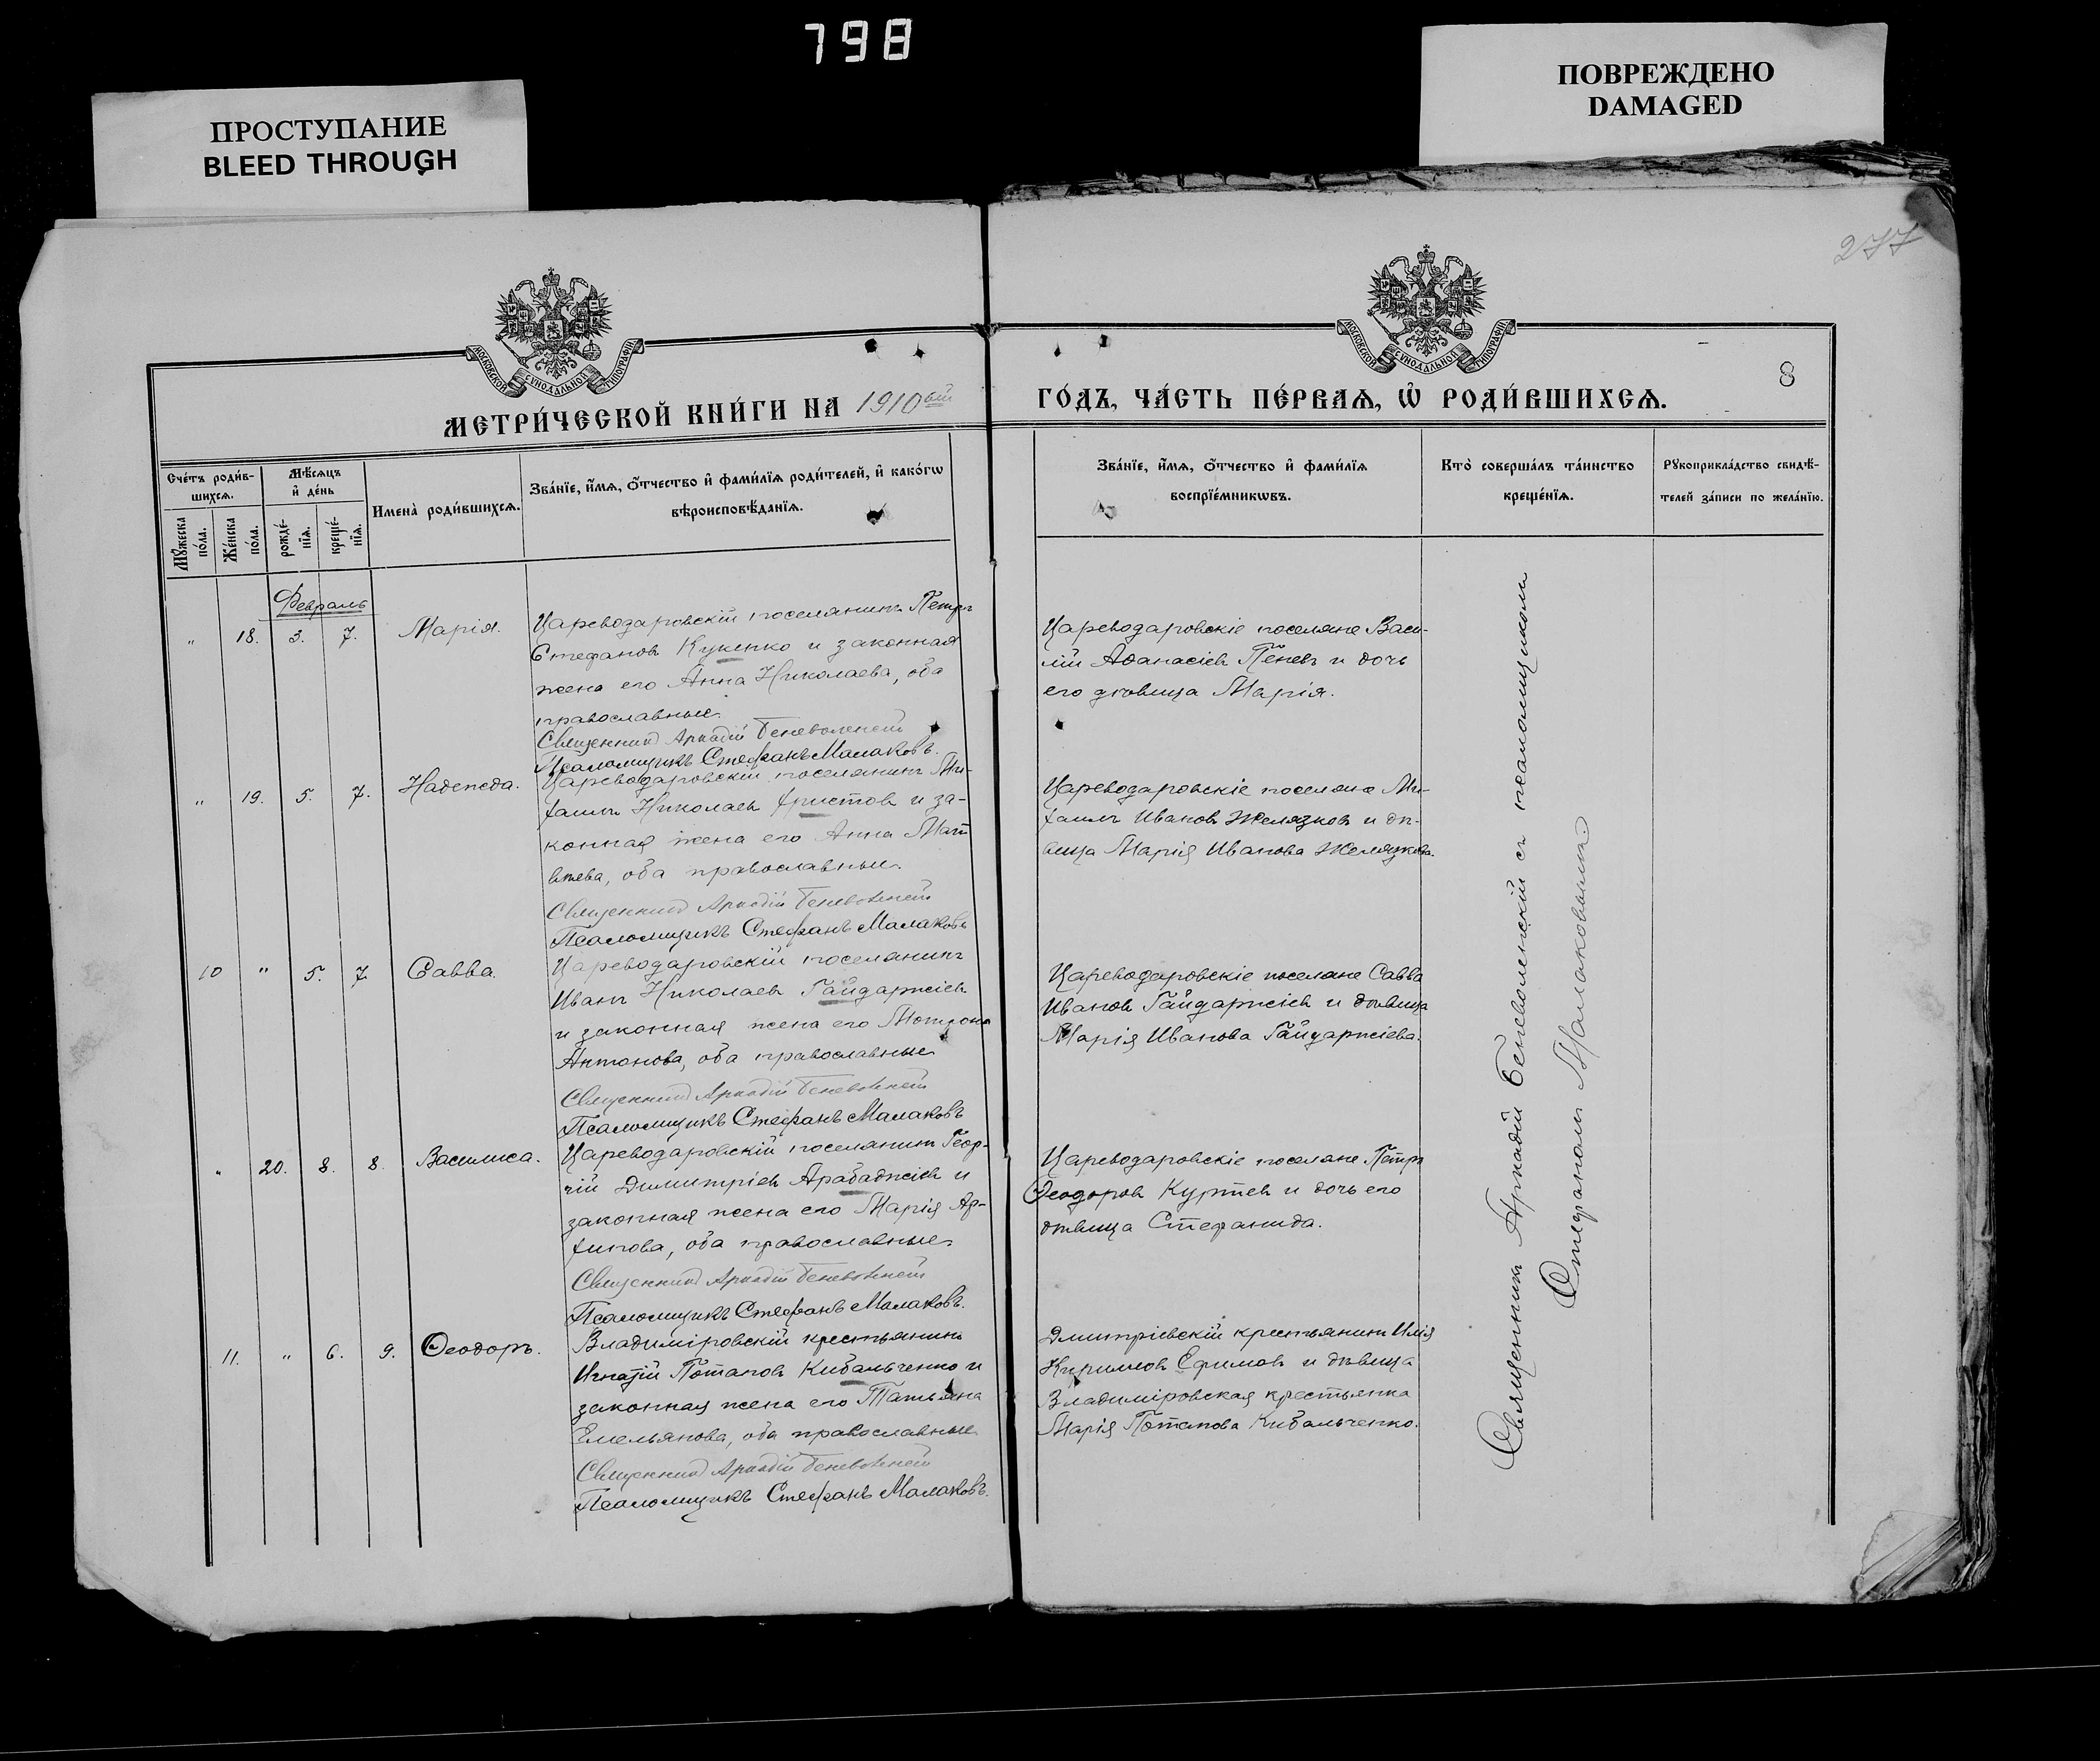 798
ПРОСТУПАНИЕ
BLEED THROUGH
ПОВРЕЖДЕНО
DAMAGED
277
8
МОСКОВСКОЙ СѴНОДАЛЬНОЙ ТИПОГРАФІИ
МОСКОВСКОЙ СѴНОДАЛЬНОЙ ТИПОГРАФІИ
МЕТРИ́ЧЕСКОЙ КНИ́ГИ НА 1910ый ГО́ДЪ, ЧА́СТЬ ПЕ́РВАѦ, Ѡ҆ РОДИ́ВШИХСѦ.
Сче́тъ роди́в-
шихсѧ.
Мꙋ́жеска
по́ла.
Же́нска
по́ла.
Мѣ́сѧцъ
и҆ де́нь
рожде́-
нїѧ.
креще́-
нїѧ.
Имена̀ роди́вшихсѧ.
Зва́нїе, и҆́мѧ, ѻ҆́тчество и҆ фами́лїѧ роди́телей, и҆ како́гѡ
вѣроисповѣ́данїѧ.
Зва́нїе, и҆́мѧ, ѻ҆́тчество и҆ фами́лїѧ
воспрїе́мникѡвъ.
Кто̀ соверша́лъ та́инство
креще́нїѧ.
Рꙋкоприкла́дство свидѣ́-
телей за́писи по жела́нїю.
Февраль
" 18. 3. 7. Марія.
Цареводаровскій поселянинъ Петръ
Стефановъ Куценко и законная
жена его Анна Николаева, оба
православные.
Священникъ Аркадій Беневоленскій
Псаломщикъ Стефанъ Малаковъ.
Цареводаровскіе поселяне Васи-
лій Афанасіевъ Пеневъ и дочь
его дѣвица Марія.
" 19. 5. 7. Надежда.
Цареводаровскій поселянинъ Ми-
хаилъ Николаевъ Христовъ и за-
конная жена его Анна Мат-
вѣева, оба православные.
Священникъ Аркадій Беневоленскій
Псаломщикъ Стефанъ Малаковъ
Цареводаровскіе поселяне Ми-
хаилъ Ивановъ Желязковъ и дѣ-
вица Марія Иванова Желязкова.
10 " 5. 7. Савва.
Цареводаровскій поселянинъ
Иванъ Николаевъ Гайдаржіевъ
и законная жена его Мотрона
Антонова, оба православные.
Священникъ Аркадій Беневоленскій
Псаломщикъ Стефанъ Малаковъ
Цареводаровскіе поселяне Савва
Ивановъ Гайдаржіевъ и дѣвица
Марія Иванова Гайдаржіева.
" 20. 8. 8. Василиса.
Цареводаровскій поселянинъ Геор-
гій Димитріевъ Арабаджіевъ и
законная жена его Марія Ар-
хипова, оба православные.
Священникъ Аркадій Беневоленскій
Псаломщикъ Стефанъ Малаковъ.
Цареводаровскіе поселяне Петръ
Ѳеодоровъ Куртевъ и дочь его
дѣвица Стефанида.
11. " 6. 9. Ѳеодоръ.
Владиміровскій крестьянинъ
Игнатій Потаповъ Кибальченко и
законная жена его Татьяна
Емельянова, оба православные
Священникъ Аркадій Беневоленскій
Псаломщикъ Стефанъ Малаковъ.
Дмитріевскій крестьянинъ Илія
Кирилловъ Ефимовъ и дѣвица
Владиміровская крестьянка
Марія Потапова Кибальченко.
Священникъ Аркадій Беневоленскій съ псаломщикомъ
Стефаномъ Малаковымъ